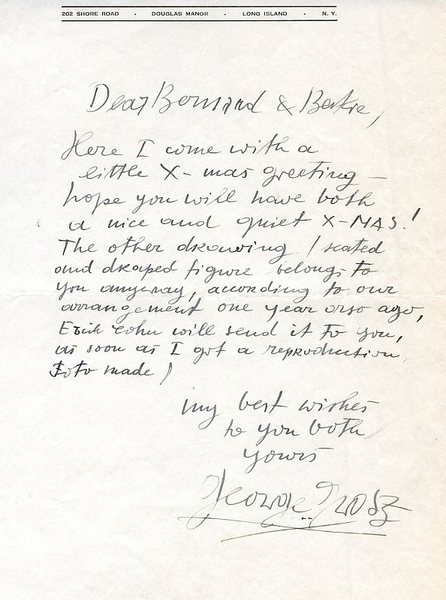 202 SHORE ROAD · DOUGLAS MANOR · LONG ISLAND · N. Y.
Dear Bernard & Beckie,
Here I come with a
little X-mas greeting —
hope you will have both
a nice and quiet X-MAS!
The other drawing / seated
and draped figure belong to
you anyway, according to our
arrangement one year or so ago,
Erich Cohn will send it to you,
as soon as I got a reproduction
Foto made /
my best wishes
to you both
yours
George Grosz